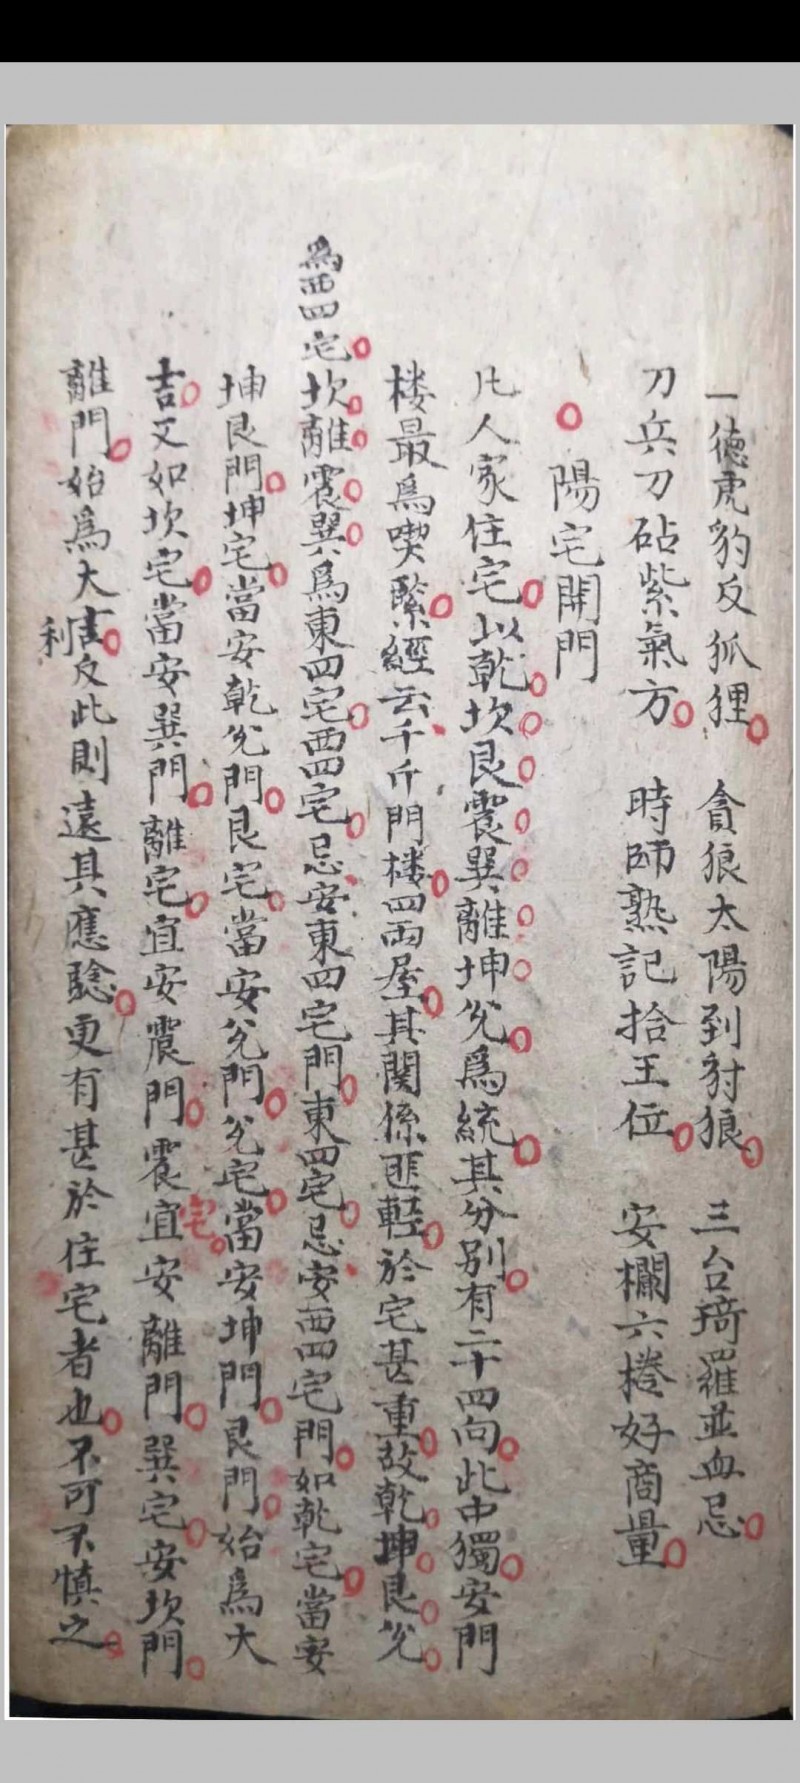 一德虎豹反狐狸 貪狼太陽到豺狼 三台 羅並血忌
刀兵刀砧紫氣方 時師熟記拾王位 安欄六 好商量
陽宅開門
凡人家住宅以乾坎艮震巽離坤兌為統其分別有二十四向此中獨安門
楼最為喫緊經云千斤門楼四両屋其関係匪輕於宅甚重故乾坤艮兌
為西四宅坎離震巽為東四宅西四宅忌安東四宅門東四宅忌安西四宅門如乾宅當安
坤艮門坤宅當安乾兌門艮宅當安兌門兌宅當安坤門艮門始為大
吉又如坎宅當安巽門離宅宜安震門震宅宜安離門巽宅安坎門
離門始為大吉利反此則遠其應騐更有甚於住宅者也不可不慎之